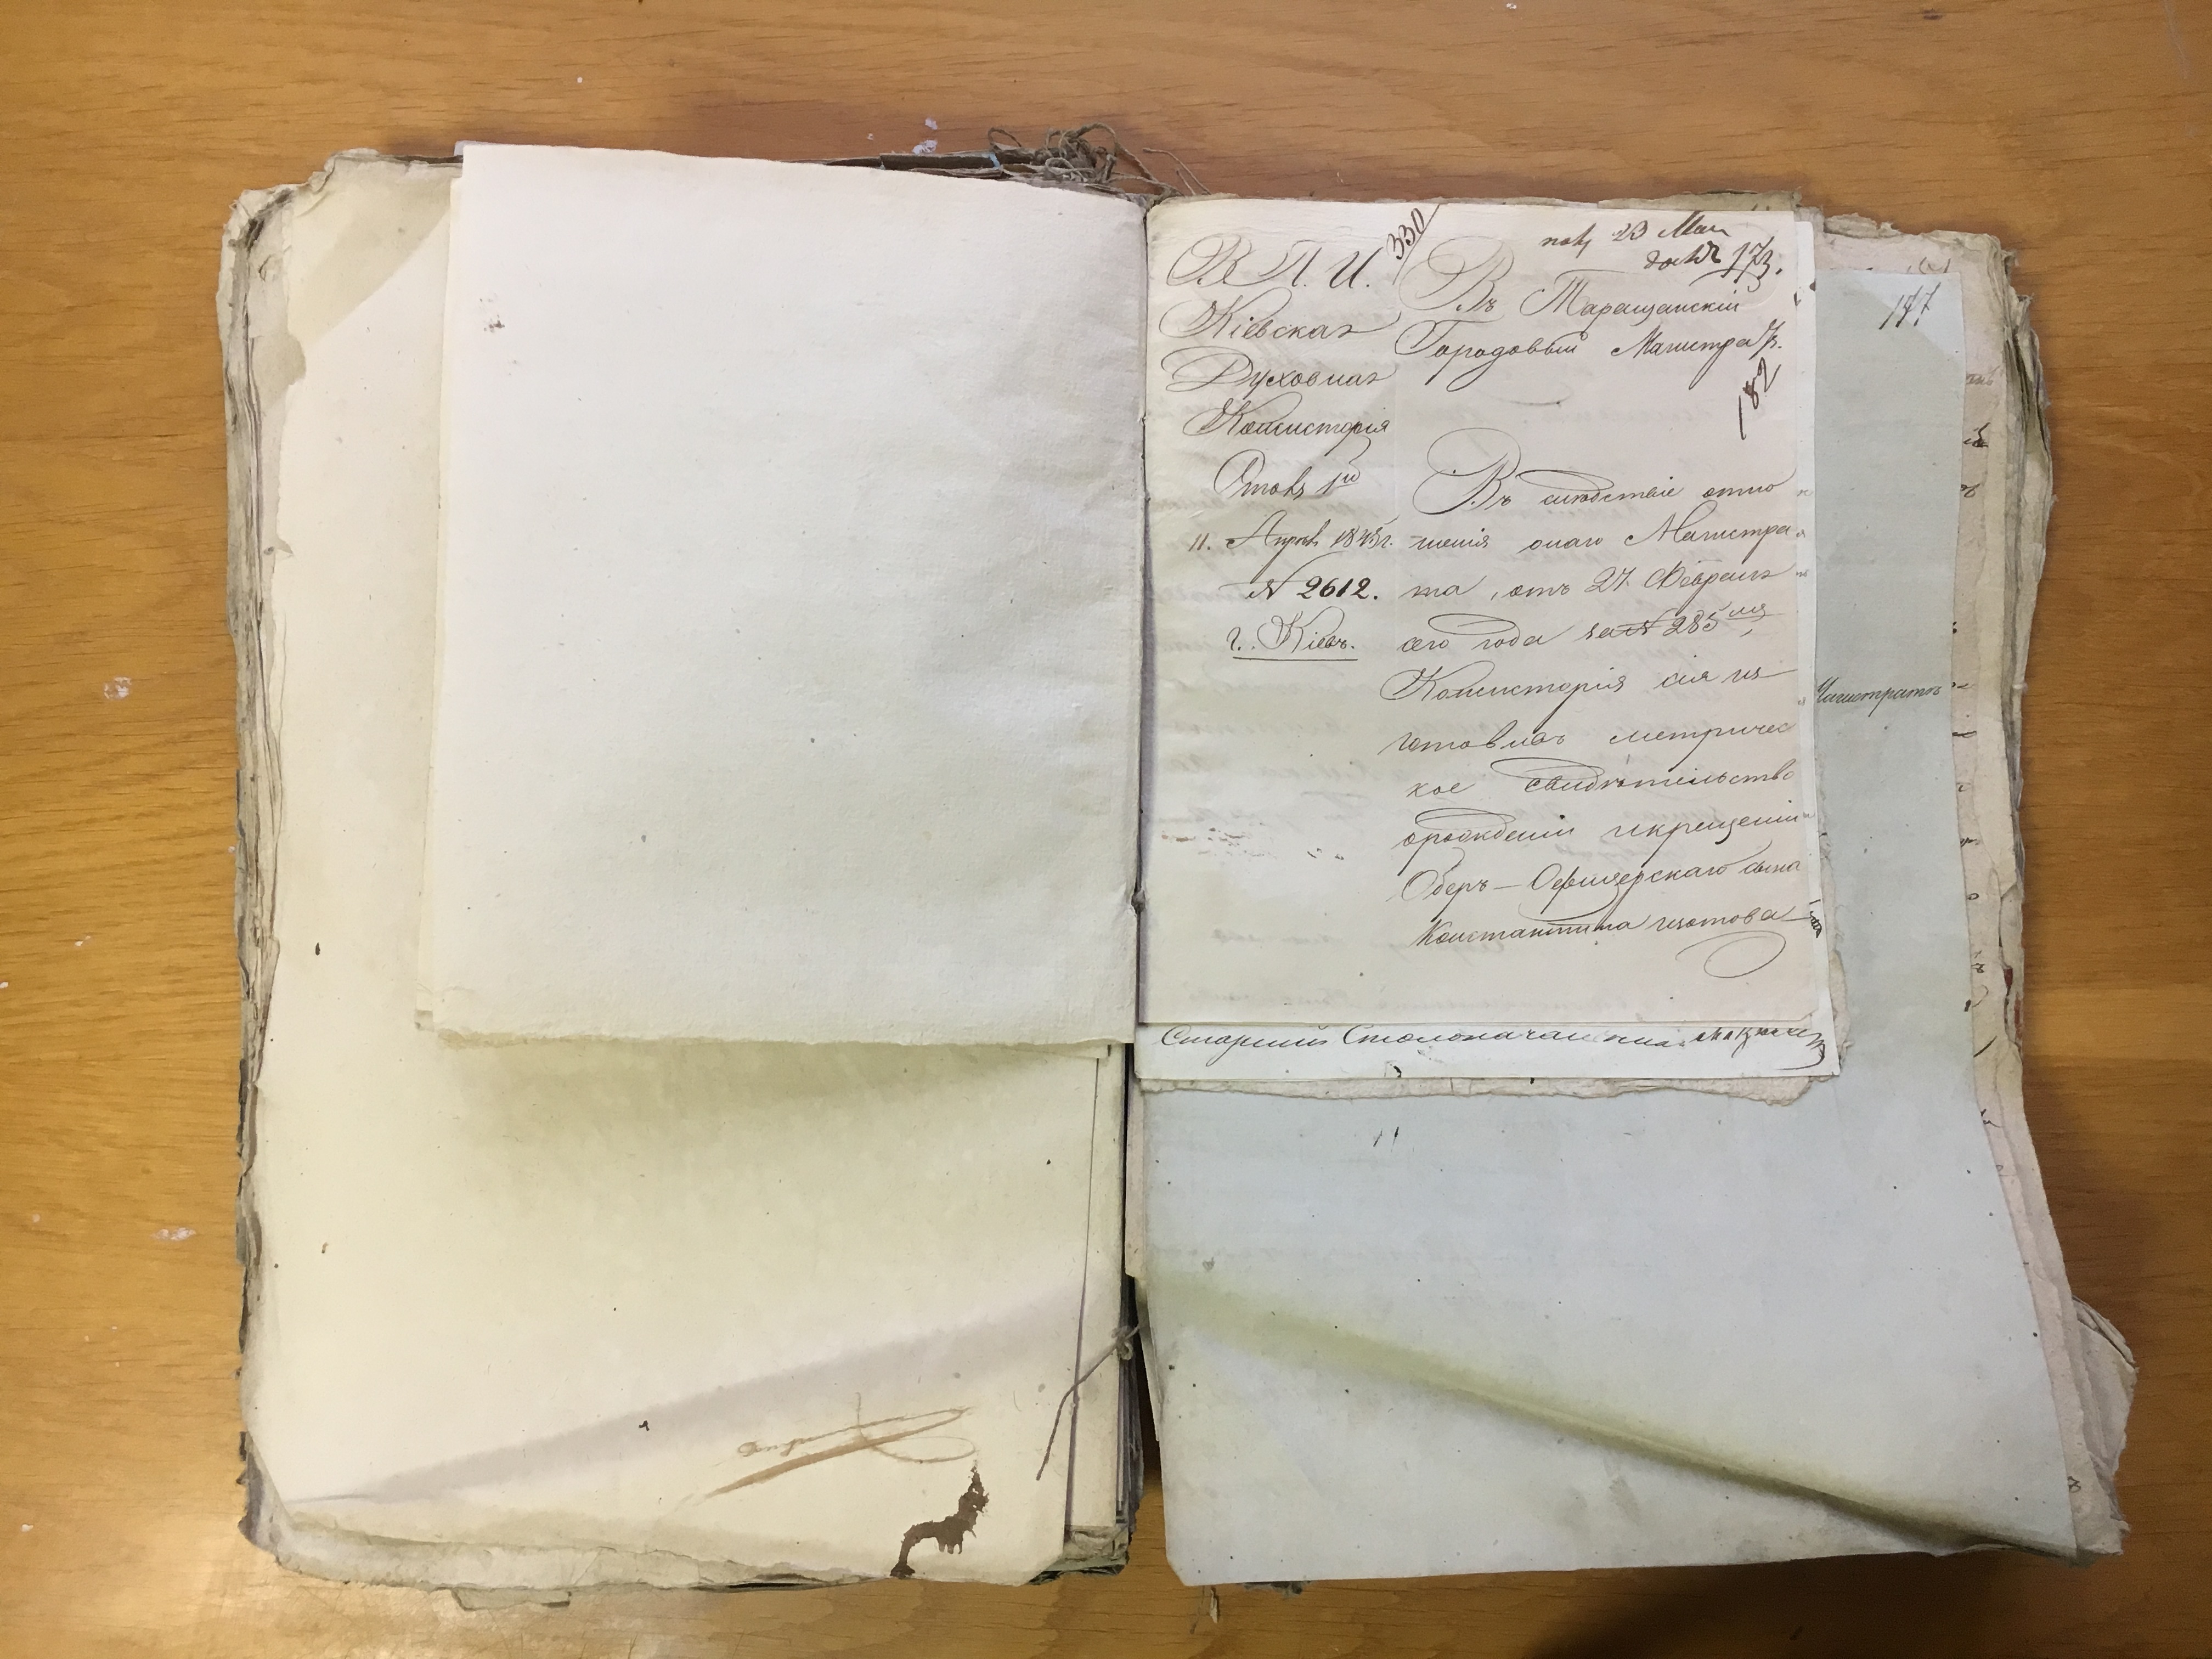 330
В. П. И.
Кіевская
Духовная
Консисторія
Столъ 1й
11. Апрѣл. 1845 г.
№ 2612.
г. Кіевъ.
пол. 23 Мая
173.
Въ Таращанскій
Городовый Магистратъ.
182
Въ слѣдствіе отно
шенія онаго Магистра
та, отъ 27 Февраля
сего года за № 285мъ,
Консисторія сія из
готовивъ метричес
кое свидѣтельство
орожденіи икрещеніи
Оберъ-Офицерскаго сына
Константина
Старшій Столоначальникъ
177
Магистратъ